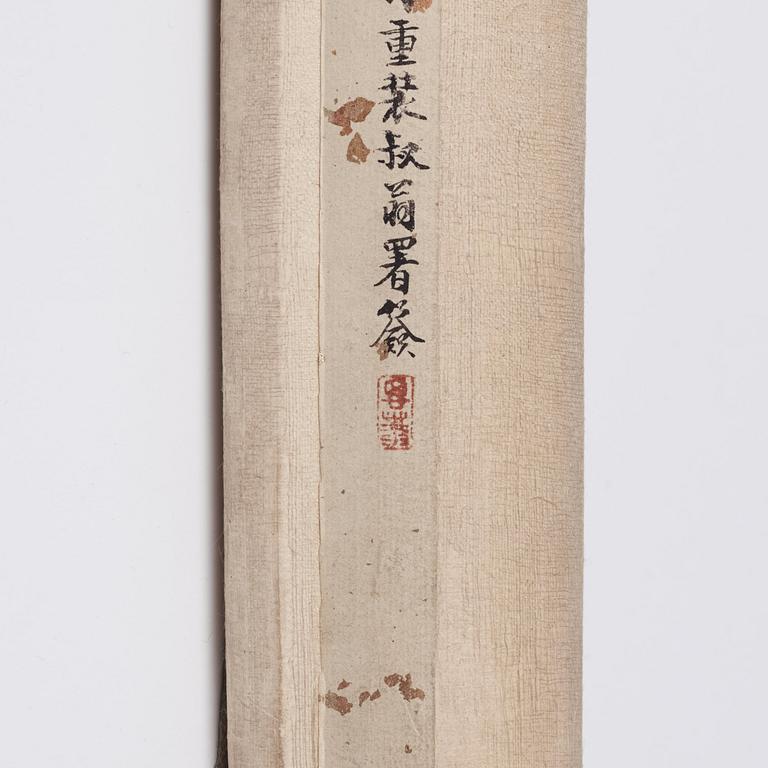 重裝叔翁署簽